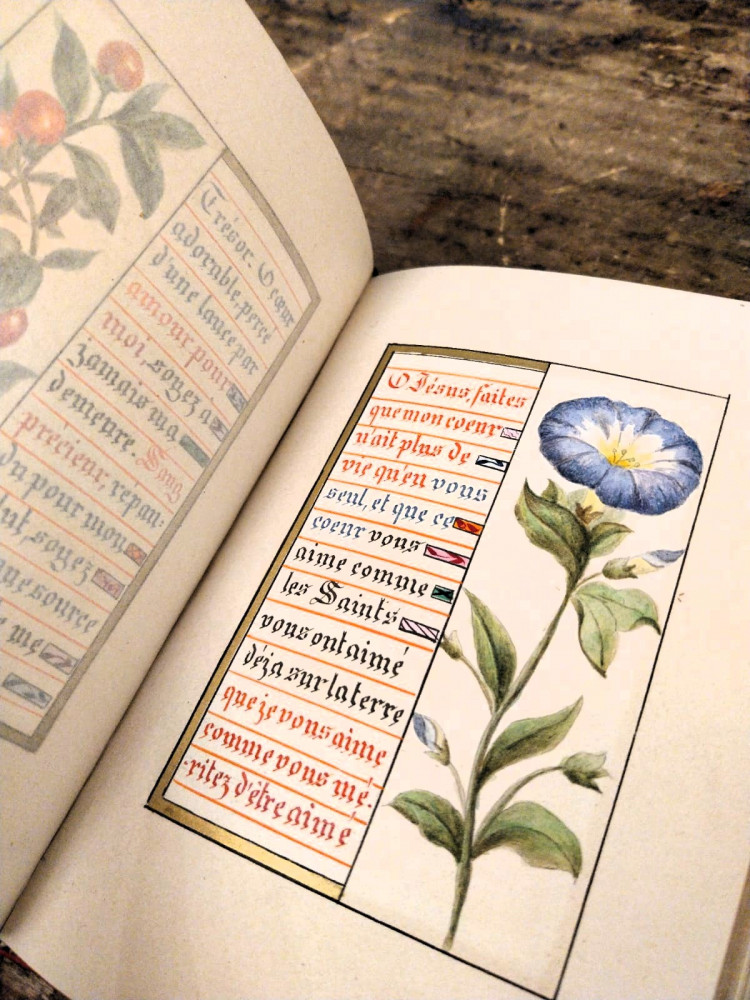 Trésor. O cœur
adorable, percé
d'une lance par
amour pour
moi, soyez a
jamais ma
demeure. Sang
précieux, répan-
du pour mon
lut, soyez
source
me
O Jésus, faites
que mon coeur
n'ait plus de
vie qu'en vous
seul, et que ce
coeur vous
aime comme
les Saints
vous ont aimé
déja sur la terre
que je vous aime
comme vous mé-
ritez d'être aimé